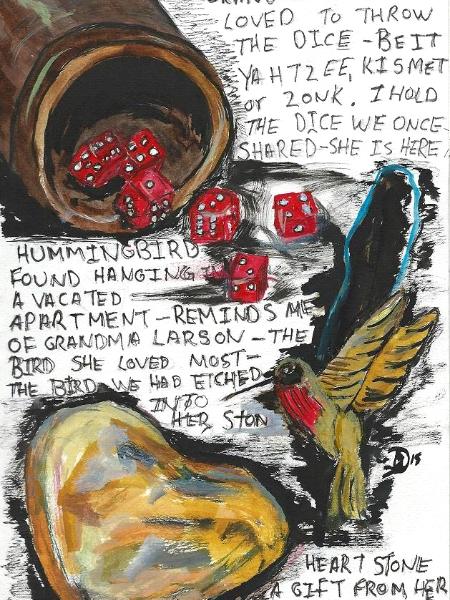 LOVED TO THROW
THE DICE - BE IT
YAHTZEE, KISMET
or ZONK. I HOLD
THE DICE WE ONCE
SHARED - SHE IS HERE
HUMMINGBIRD
FOUND HANGING IN
A VACATED
APARTMENT - REMINDS ME
OF GRANDMA LARSON - THE
BIRD SHE LOVED MOST -
THE BIRD WE HAD ETCHED
INTO
HER STON
D 15
HEART STONE
A GIFT FROM HER